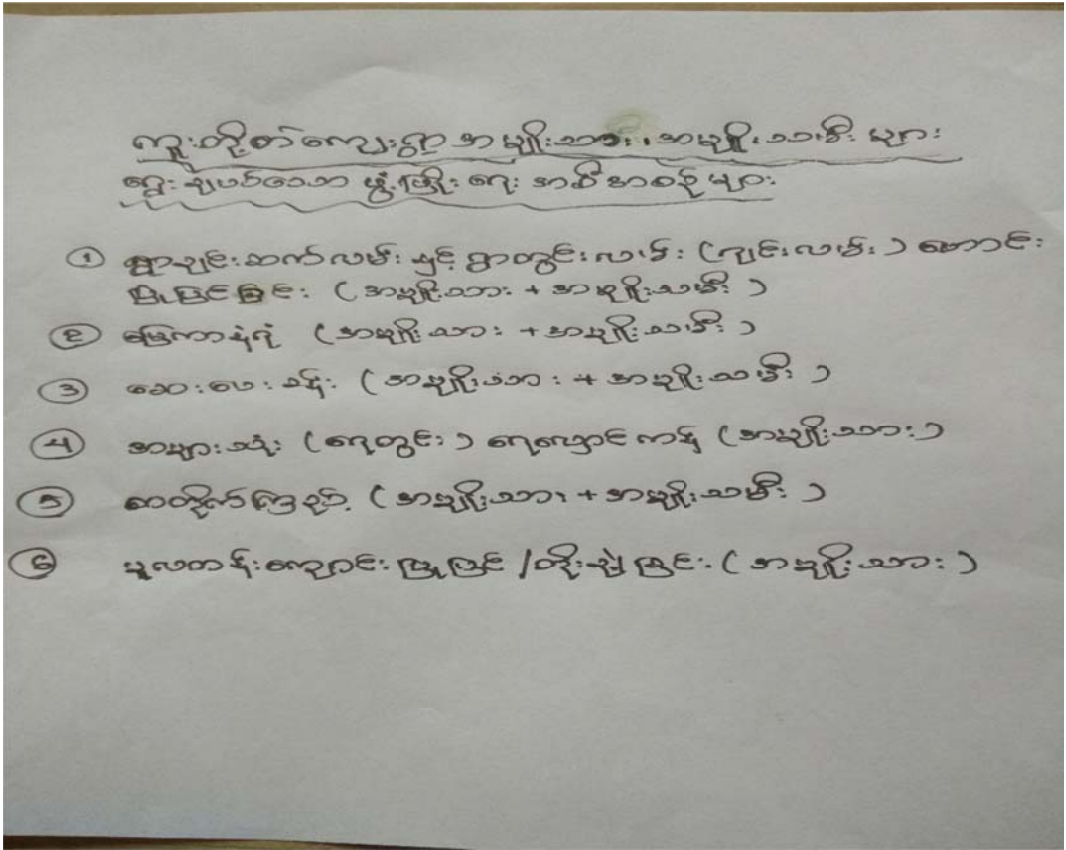 ကူးတို့စိတ်ကျေးရွာ အမျိုးသား၊ အမျိုးသမီး များ
ရွေးချယ်သော ဖွံ့ဖြိုးရေး အစီအစဉ်များ
① ရွာချင်းဆက်လမ်း နှင့် ရွာတွင်းလမ်း (ကျင်းလမ်း) ဟောင်း
ပြုပြင်ခြင်း (အမျိုးသား + အမျိုးသမီး)
② မြေကာနံရံ (အမျိုးသား + အမျိုးသမီး)
③ ဆေးပေးခန်း (အမျိုးသား + အမျိုးသမီး)
④ အများသုံး (ရေတွင်း) ရေလှောင်ကန် (အမျိုးသား)
⑤ စာတိုက်ကြည့် (အမျိုးသား + အမျိုးသမီး)
⑥ မူလတန်းကျောင်း ပြုပြင် / တိုးချဲ့ခြင်း (အမျိုးသား)